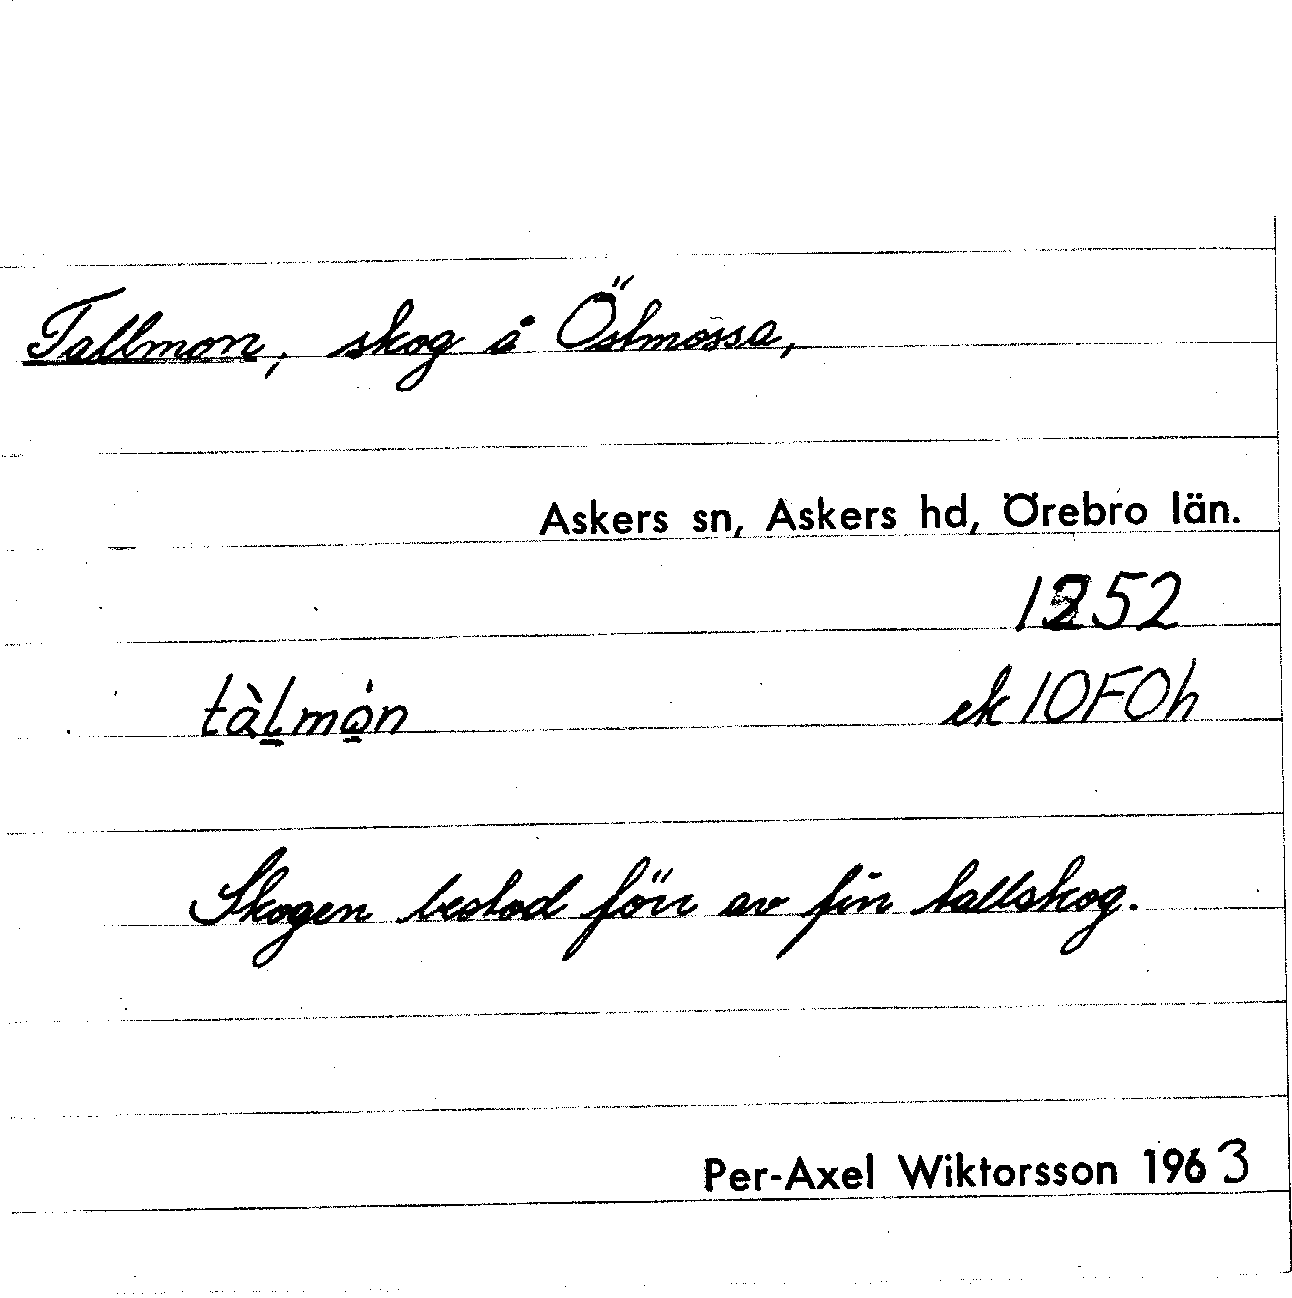 Tallmon, skog å Östmossa,
Askers sn, Askers hd, Örebro län.
1252
tàl̲mò̲n ek 10F0h
Skogen bestod förr av fin tallskog.
Per-Axel Wiktorsson 1963